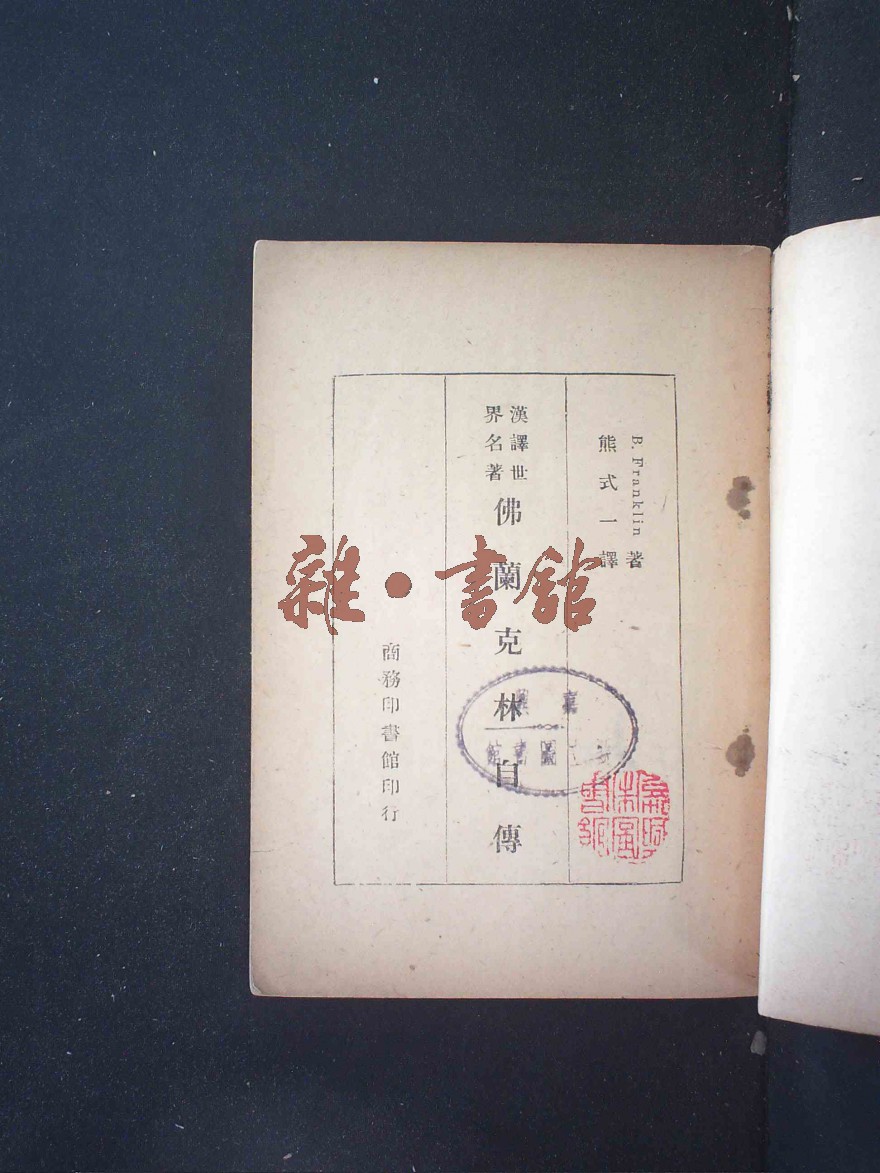 B. Franklin 著
熊式一譯
漢譯世
界名著
佛蘭克林自傳
商務印書館印行
雜·書館
圖書館